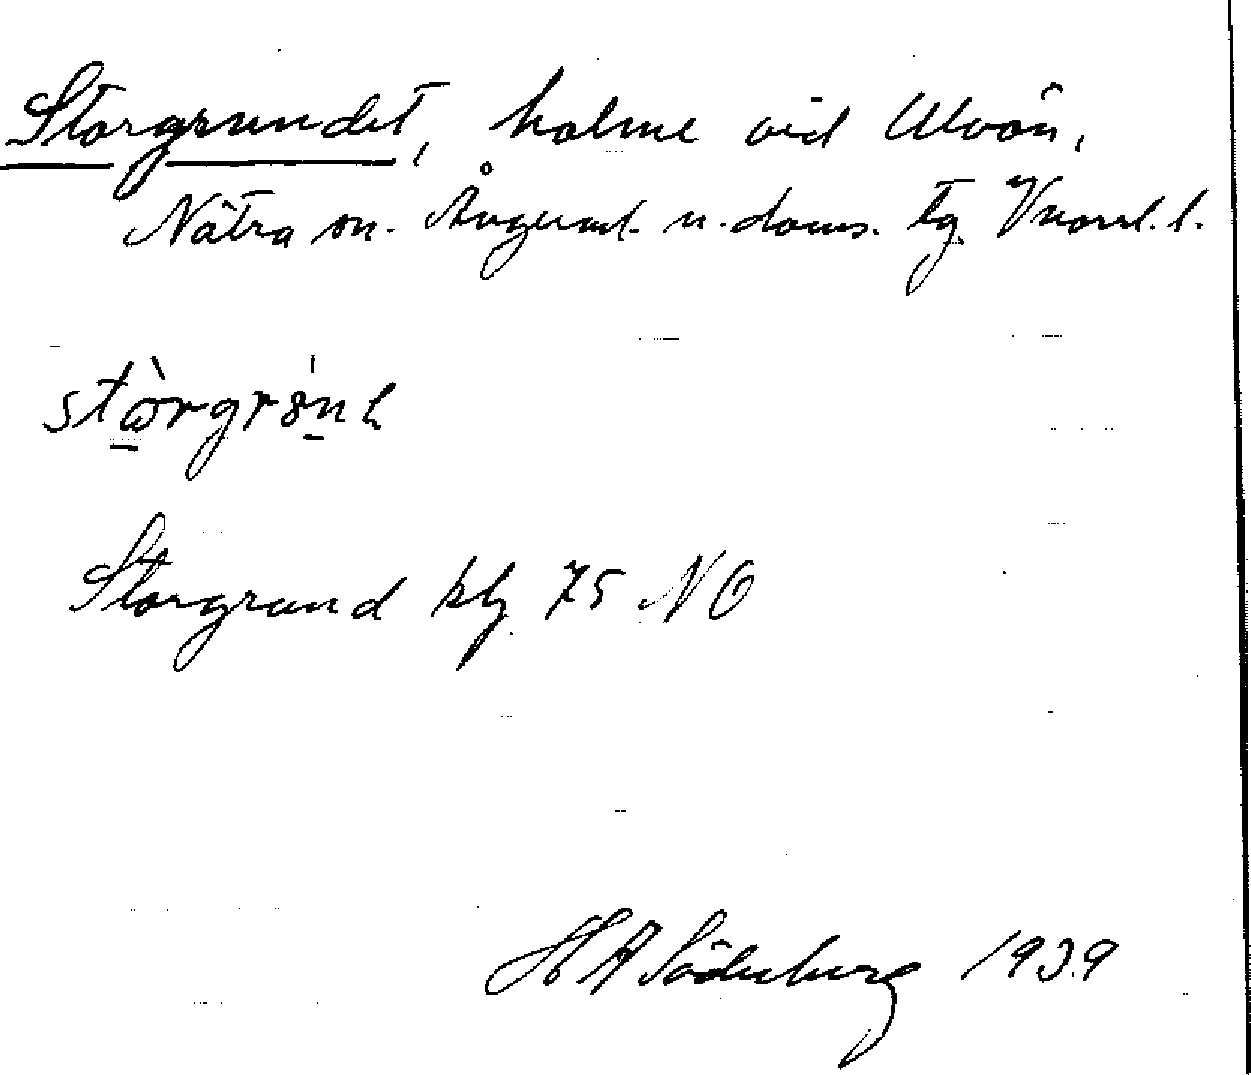 Storgrundet, holme vid Ulvön,
Nätra sn. Ångerml. n. doms. tg. Vnorrl. l.
stòrgrǿnɩ
Storgrund kfg. 75 NO
H A Söderberg 1939